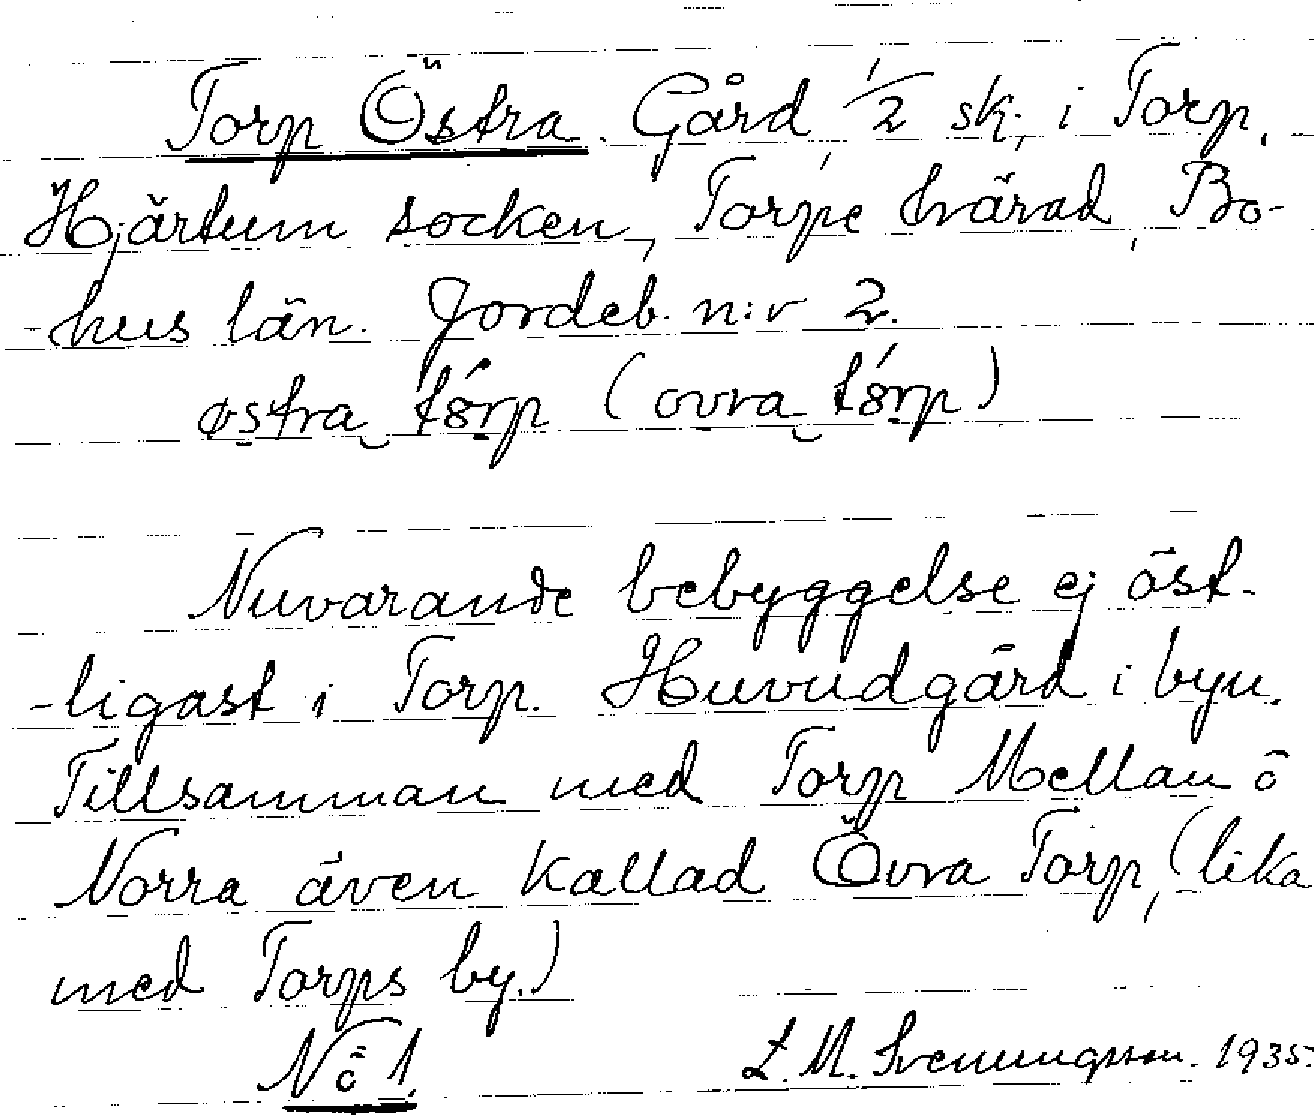 Torp Östra. Gård 1/2 sk. i Torp,
Hjärtum socken, Torpe härad, Bo-
-hus län. Jordeb. n:r 2.
østra tórp (ovra tórp)
Nuvarande bebyggelse ej öst-
-ligast i Torp. Huvudgård i byn.
Tillsamman med Torp Mellan o
Norra även kallad Övra Torp, (lika
med Torps by.)
No 1. L. M. Svenungsson. 1935.